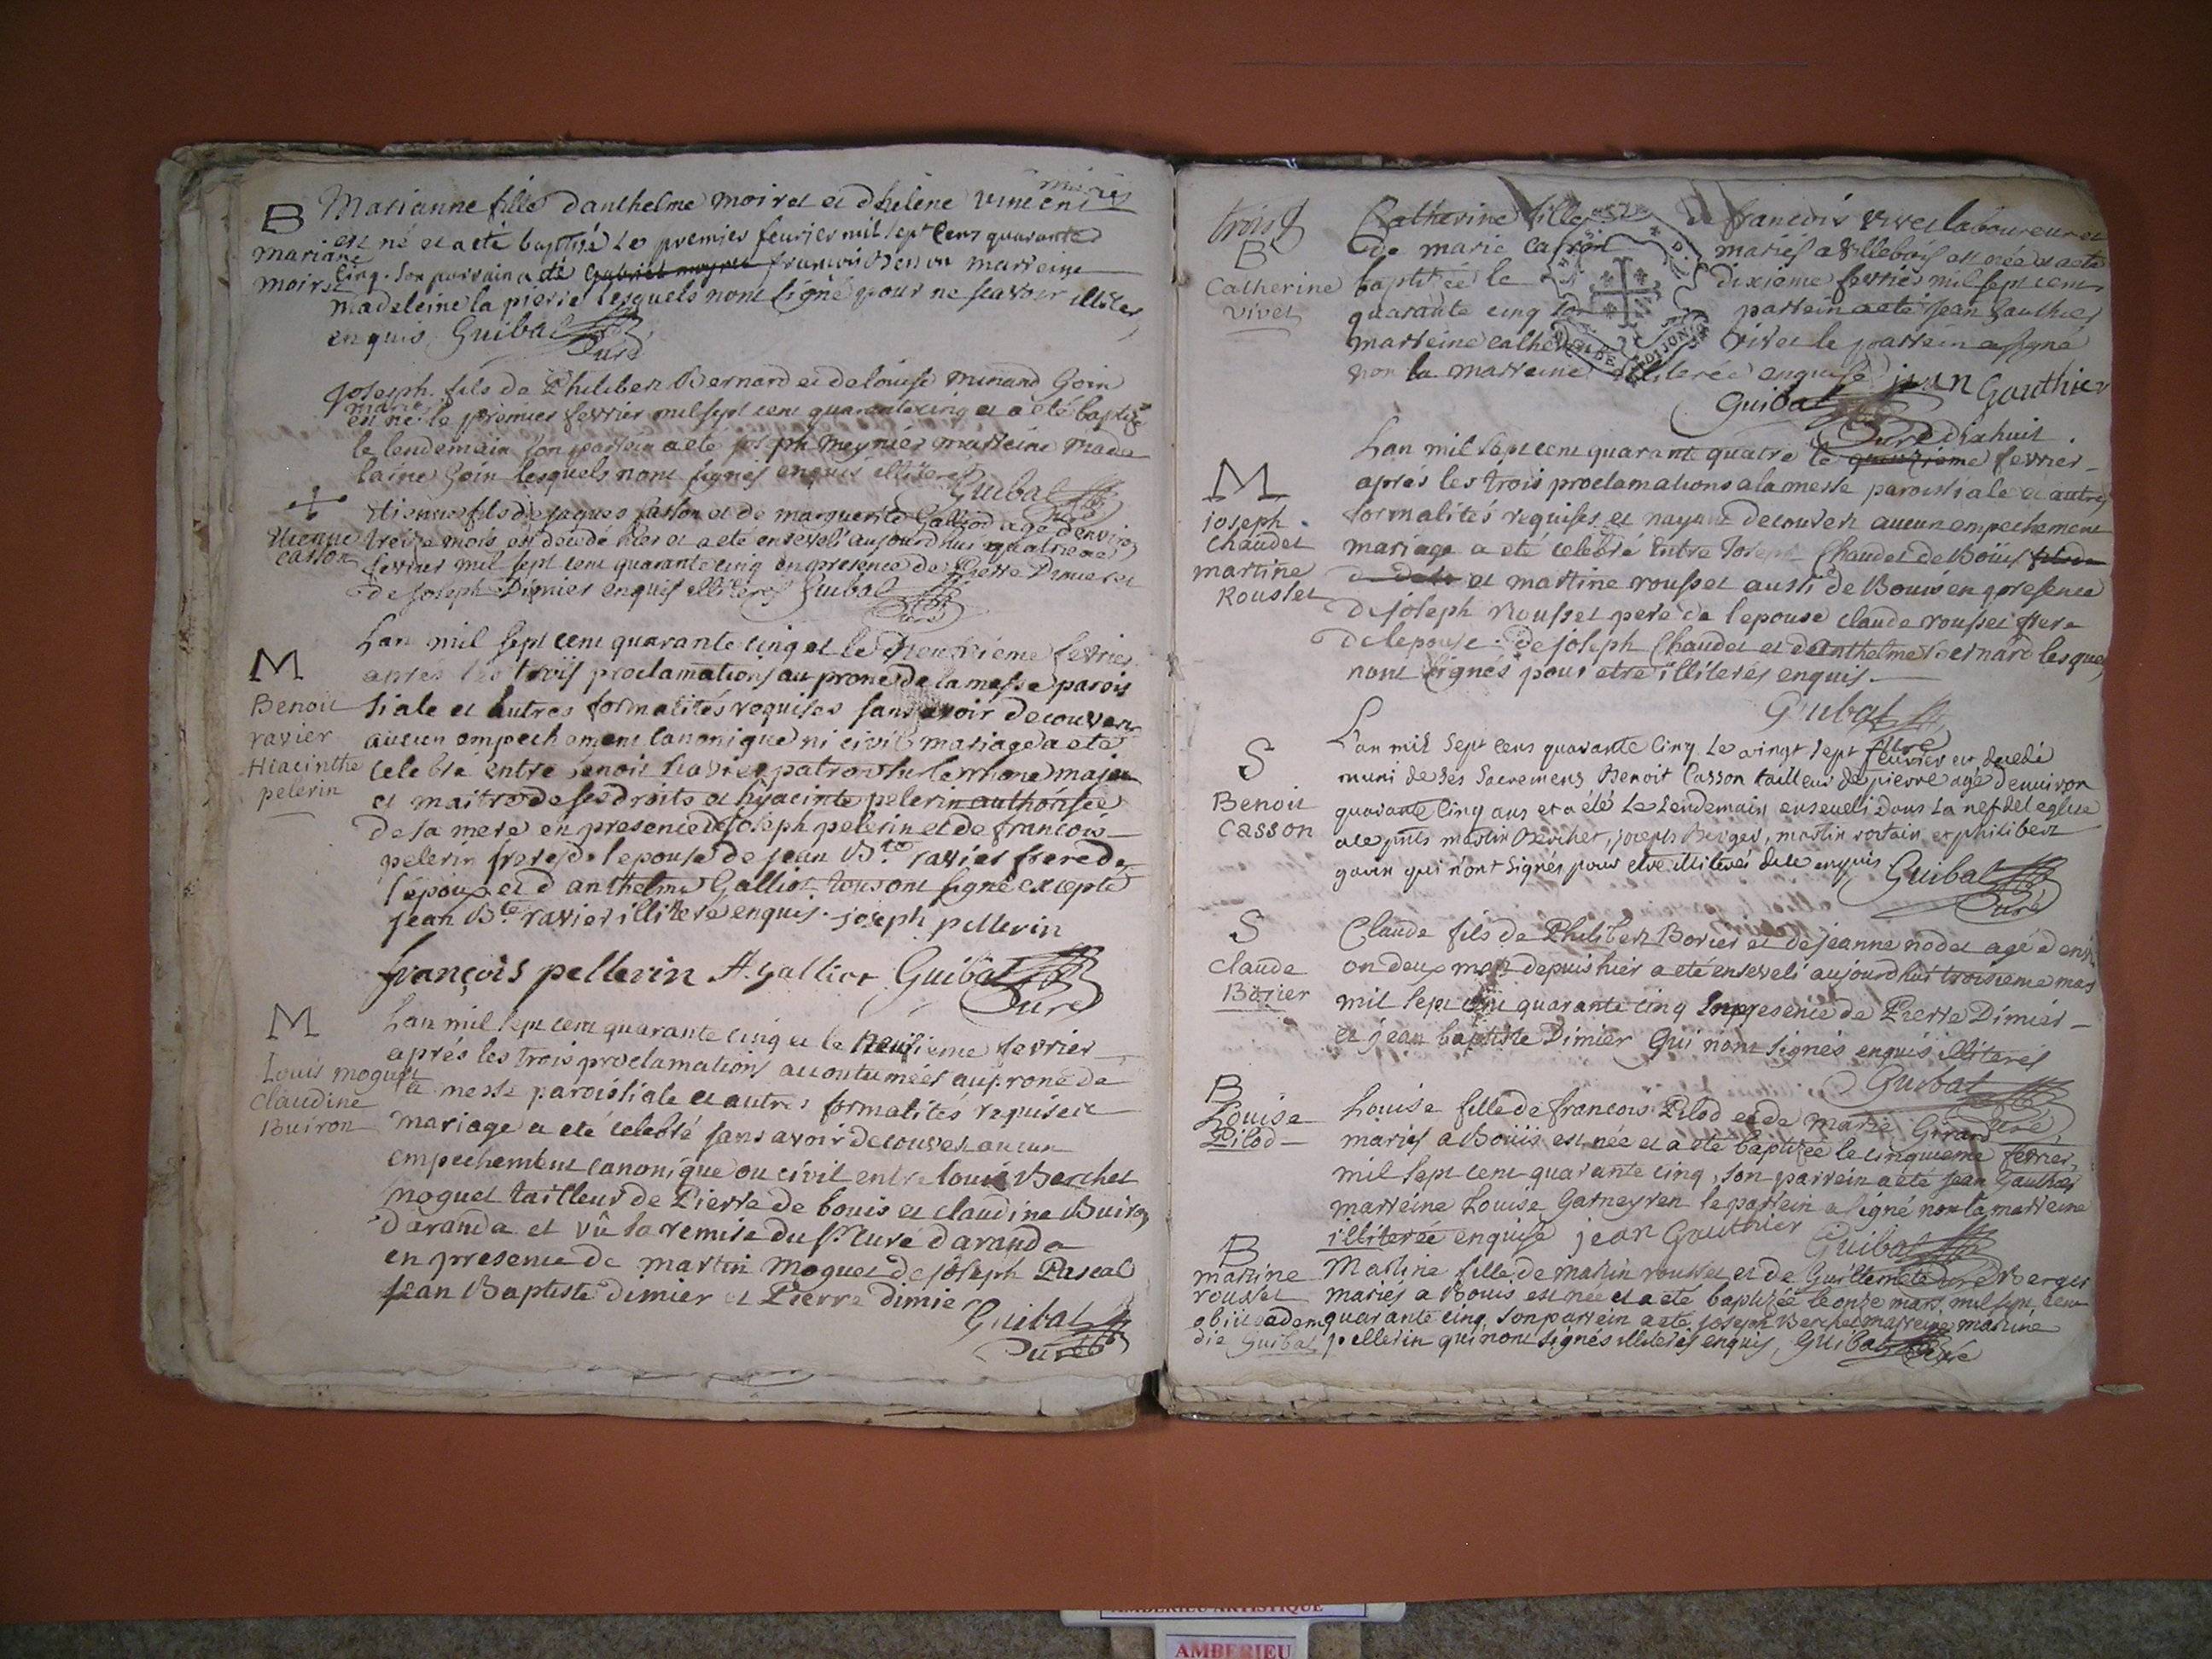 B
Marianne
moiret
mariés
Marianne fille danthelme moiret et dhelene vincent
est né et a eté baptisé le premier feurier mil sept cens quarante
cinq. son parrain a eté francois marreine
madeleine la pierre lesquels nont signé pour ne scavoir illiterés
enquis Guibal
Curé
Joseph fils de Philibert Bernard et de louise minand Goin
mariés
est né le premier fevrier mil sept cent quarante cinq et a eté baptizé
le lendemain son parrein a eté joseph meynier marreine made
laine Goin lesquels nont signés enquis illiterés
Guibal
+
Etienne
Casson
Etienne fils de jaques Casson et de marguerite Galliod agé denviron
treize mois est decedé hier et a eté enseveli aujourdhui quatrieme
fevrier mil sept cent quarante cinq en presence de Pierre Dimier et
de joseph Dimier enquis illiterés Guibal
Curé
M
Benoit
ravier
Hiacinthe
pelerin
Lan mil sept cent quarante cinq et le neuvieme fevrier
aprés les trois proclamations au prone de la messe parois
siale et autres formalités requises sans avoir decouvert
aucun empechement canonique ni civil mariage a eté
celebré entre benoit Ravier patron sur le rhone majeur
et maitre de ses droits et hyacinte pelerin authorisée
de sa mere en presence de joseph pelerin et de francois
pelerin freres de lepouse de jean Bte ravier frere de
lépoux et d anthelme Galliot tous ont signé excepté
jean Bte ravier illiteré enquis. joseph pellerin
françois pellerin A. Galliot Guibal
Curé
M
Louis moguet
Claudine
Buiron
Lan mil sept cent quarante cinq et le neuvieme fevrier
aprés les trois proclamations accoutumées au prone de
la messe paroissiale et autres formalités requises
mariage a eté celebré sans avoir decouvert aucun
empechement canonique ou civil entre louis Berchet
moguet tailleur de Pierre de bouis et claudine Buiron
daranda et vû la remise du Sr Curé daranda
en presence de martin moguet de joseph Pascal
jean Baptiste dimier et Pierre dimier
Guibal
Curé
trois
B
Catherine
vivet
Catherine fille de francois vivet laboureur et
de marie casson mariés a villebois est née et a eté
baptisée le dixieme fevrier mil sept cent
quarante cinq son parrein a eté jean Gauthier
marreine catherine vivet le parrein a signé
non la marreine illiterée enquise jean Gauthier
Guibal
Curé
M
joseph
chaudet
martine
Rousset
dixhuit
Lan mil sept cent quarant quatre le quinzieme fevrier
aprés les trois proclamations a la messe paroissiale et autres
formalités requises et nayant decouvert aucun empechement
mariage a eté celebré entre Joseph Chaudet de Boüis
et martine rousset aussi de Bouis en presence
de joseph rousset pere de lepouse claude rousset frere
de lepouse. de joseph Chaudet et danthelme bernard lesquels
nont signés pour etre illiterés enquis.
Guibal
Curé
S
Benoit
Casson
L'an mil sept cens quarante Cinq le vingt sept feurier est decedé
muni de ses Sacremens Benoit Casson tailleur de pierre agé denuiron
quarante Cinq ans et a été le lendemain enseueli dans la nef del eglise
martin Berchet, joseph Berger, martin et philibert
gouin qui n'ont signés pour etre illiterés de ce enquis Guibal
Curé
S
Claude
Borier
Claude fils de Philibert Borier et de jeanne nodet agé denvi
on deux mort depuis hier a eté enseveli aujourdhui troisieme mars
mil sept cent quarante cinq en presence de Pierre Dimier
et jean baptiste Dimier Qui nont signés enquis illiterés
Guibal
Curé
B
Louise
Pilod
Louise fille de francois Pilod et de marie Girard
mariés a Boüis est née et a eté baptizée le cinquieme fevrier
mil sept cent quarante cinq, son parrein a eté jean Gauthier
marreine Louise Garneyren le parrein a signé non la marreine
illiterée enquise jean Gauthier Guibal
Curé
B
martine
rousset
obiit eadem
die Guibal
Martine fille de martin rousset et de Guillemete Berger
mariés a Bouis est née et a eté baptizée le onze mars mil sept cent
quarante cinq, son parrein a eté joseph Berchet marreine martine
pellerin qui nont signés illiterés enquis, Guibal
Curé
DIJON
AMBERIEU ARTISTIQUE
AMBERIEU